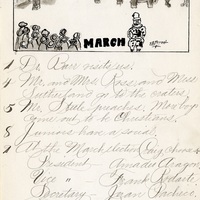 MARCH
1 Dr. Barr visits us.
4 Mr. and Mrs. Ross and Miss
Sutherland go to the realers.
5 Mr. Steele preaches. Many boys
come out to be Christians.
8 Juniors have a social.
1 At the March election Guy
President Amadeo Aragon
Vice " Frank
Secretary - Juan Pacheco